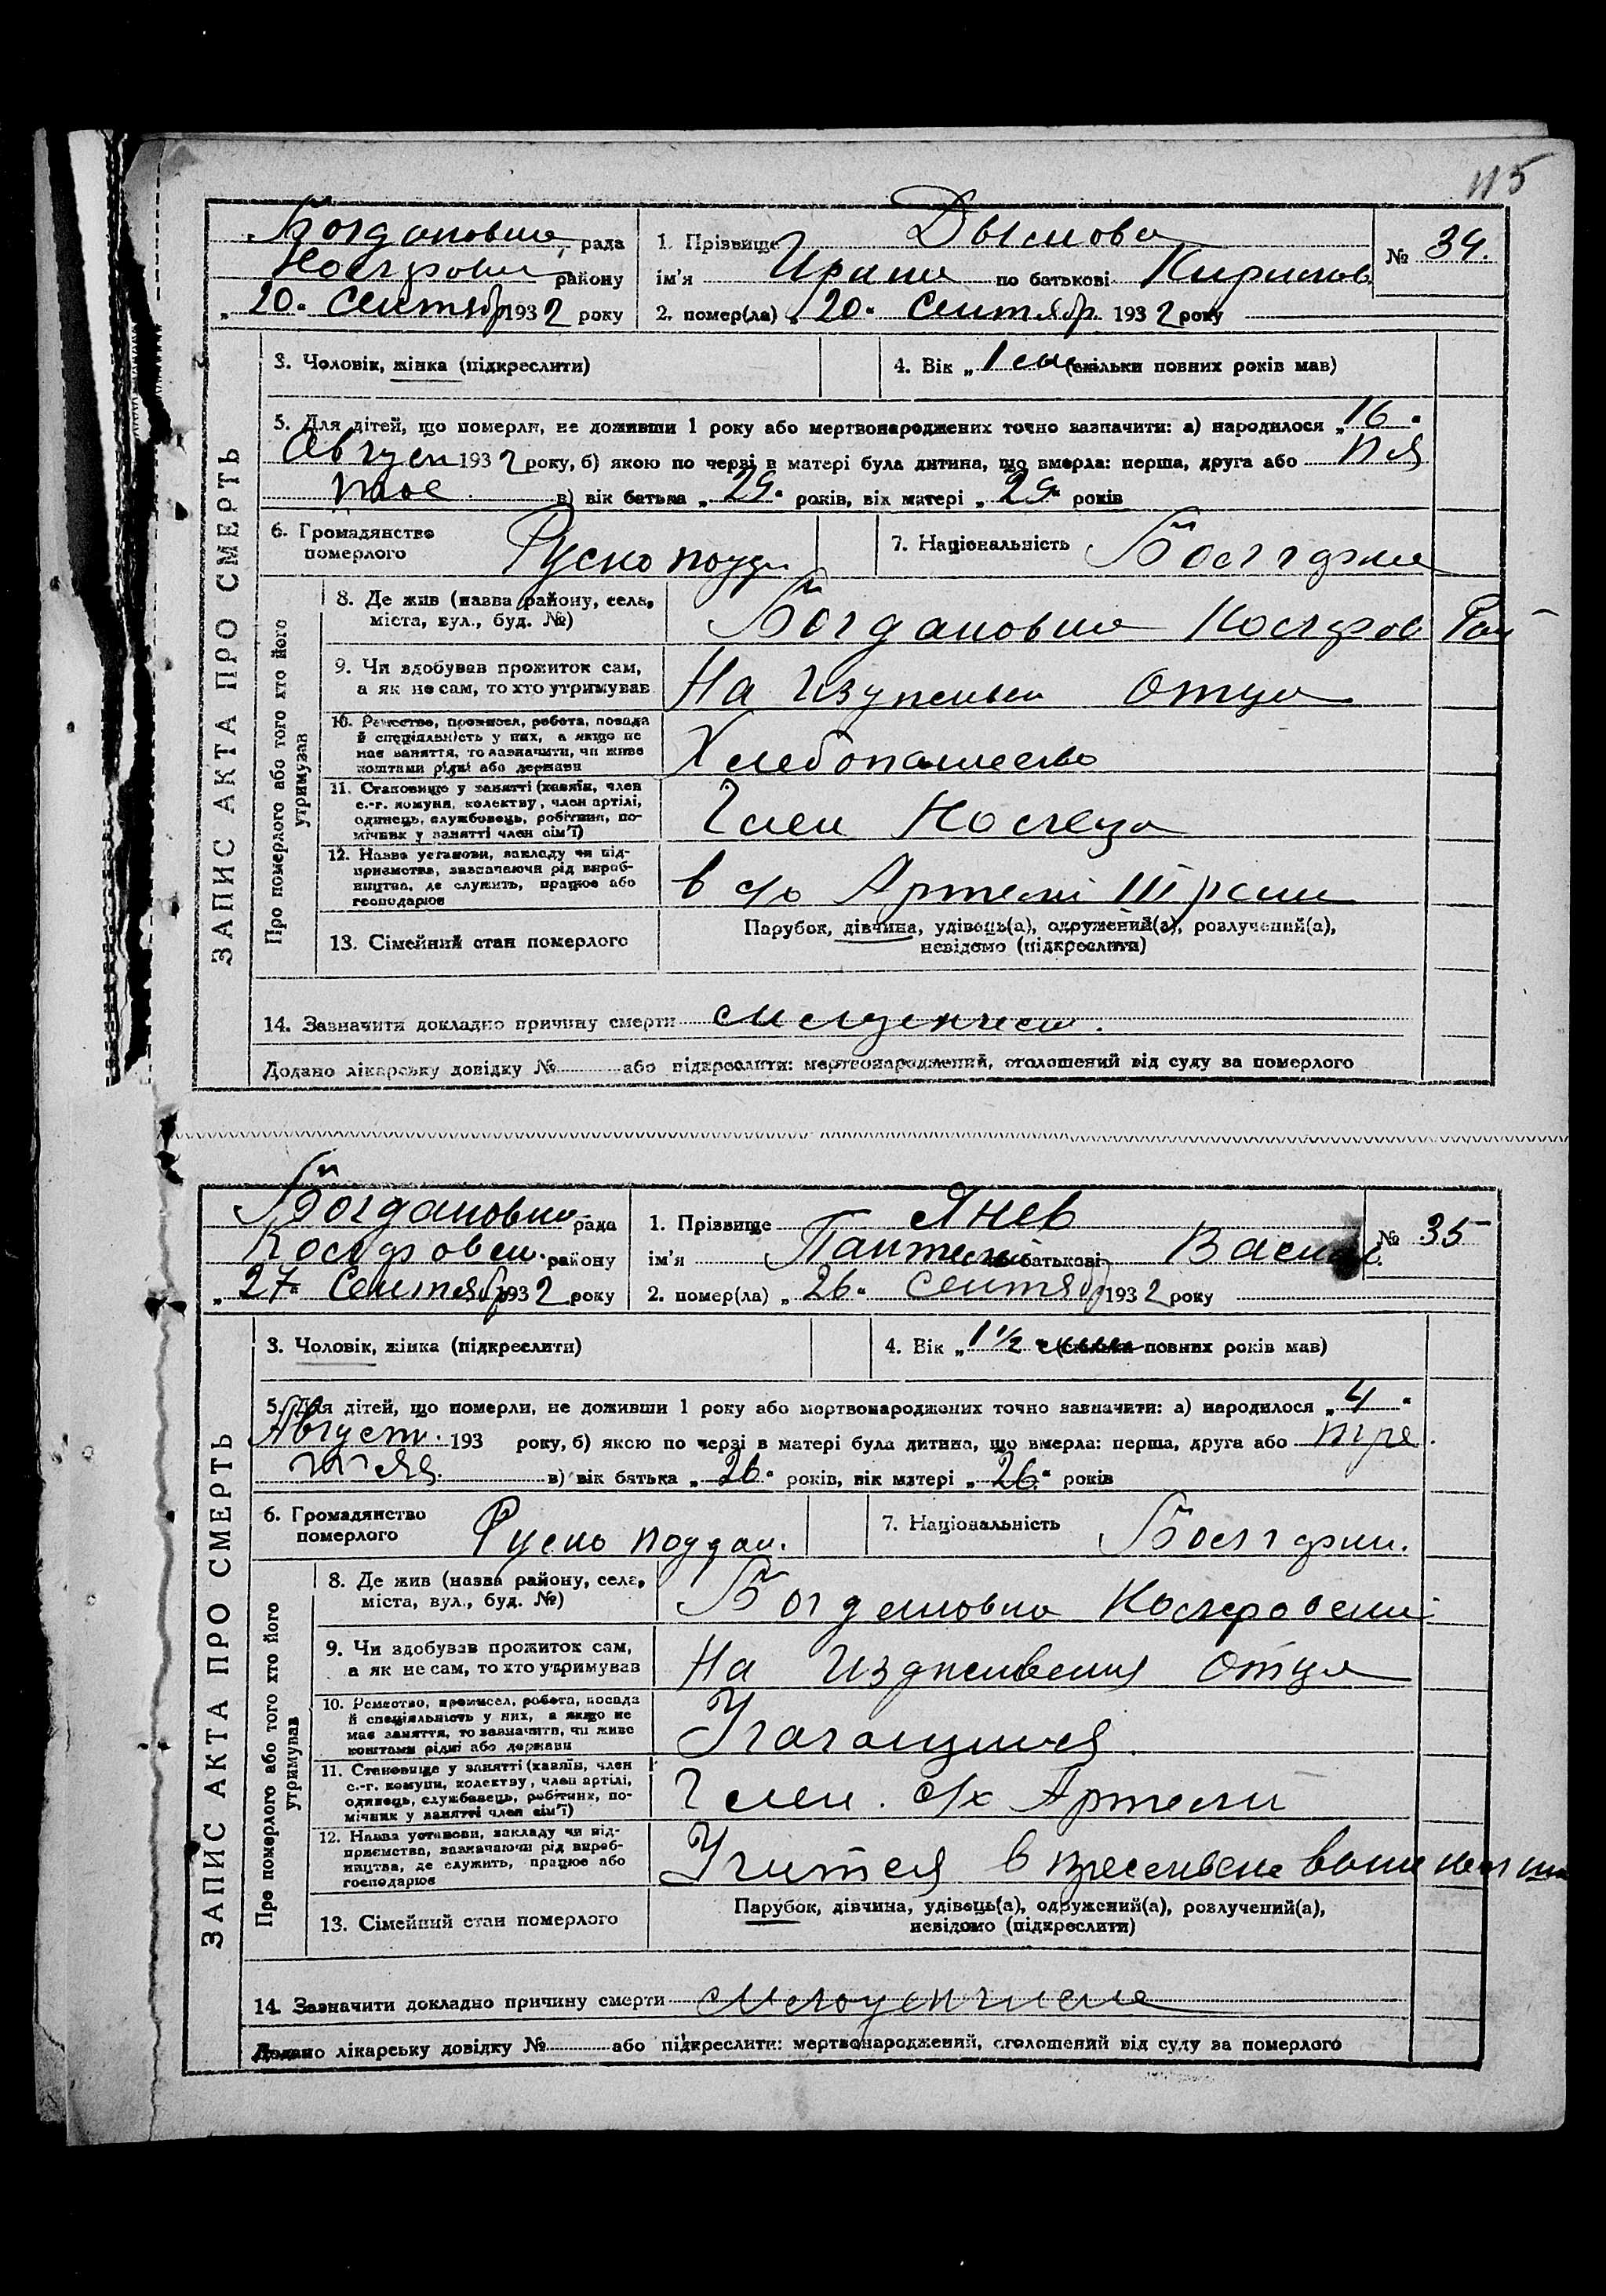 115
Богдановка рада
району
„20" Сентябр 1932 року
1. Прізвище Дымова
ім'я Ирина по батькові Кирилов
2. помер(ла) „20" Сентябр. 1932 року
№ 34.
ЗАПИС АКТА ПРО СМЕРТЬ
3. Чоловік, жінка (підкреслити)
4. Вік „1 (скільки повних років мав)
5. Для дітей, що померли, не доживши 1 року або мертвонароджених точно зазначити: а) народилося „16"
Август 1932 року, б) якою по черзі в матері була дитина, що вмерла: перша, друга або пя
тое в) вік батька „29" років, вік матері „29" років
6. Громадянство
померлого
Руско подд.
7. Національність Болгарка
Про померлого або того хто його
утримував
8. Де жив (назва району, села,
міста, вул., буд. №)
Богдановка Коларов Рай
9. Чи здобував прожиток сам,
а як не сам, то хто утримував
На Отца
10. Ремество, промисел, робота, посада
й спеціяльність у них, а якщо не
має заняття, то зазначити, чи живе
коштами рідні або держави
Хлебопашество
11. Становище у занятті (хазяїн, член
с.-г. комуни, колективу, член артілі,
одинець, службовець, робітник, по-
мічник у занятті член сім'ї)
Член Колхоза
12. Назва установи, закладу чи під-
приємства, зазначаючи рід вироб-
ництва, де служить, працює або
господарює
в с/х Артели
13. Сімейний стан померлого
Парубок, дівчина, удівець(а), одружений(а), розлучений(а),
невідомо (підкреслити)
14. Зазначити докладно причину смерти
Додано лікарську довідку № або підкреслити: мертвонароджений, оголошений від суду за померлого
Богдановка рада
Коларовск. району
„27" Сентябр 1932 року
1. Прізвище Янев
ім'я Пантелей по батькові Васил
2. помер(ла) „26" Сентябр 1932 року
№ 35
ЗАПИС АКТА ПРО СМЕРТЬ
3. Чоловік, жінка (підкреслити)
4. Вік „1 1/2 (скільки повних років мав)
5. Для дітей, що померли, не доживши 1 року або мертвонароджених точно зазначити: а) народилося „4"
Август. 193 року, б) якою по черзі в матері була дитина, що вмерла: перша, друга або тре
в) вік батька „26" років, вік матері „26" років
6. Громадянство
померлого
Руско поддан.
7. Національність Болгарин.
Про померлого або того хто його
утримував
8. Де жив (назва району, села,
міста, вул., буд. №)
Богдановка Коларовский
9. Чи здобував прожиток сам,
а як не сам, то хто утримував
На Отца
10. Ремество, промисел, робота, посада
й спеціяльність у них, а якщо не
має заняття, то зазначити, чи живе
коштами рідні або держави
Учащийся
11. Становище у занятті (хазяїн, член
с.-г. комуни, колективу, член артілі,
одинець, службовець, робітник, по-
мічник у занятті член сім'ї)
Член. с/х Артели
12. Назва установи, закладу чи під-
приємства, зазначаючи рід вироб-
ництва, де служить, працює або
господарює
Учится в
13. Сімейний стан померлого
Парубок, дівчина, удівець(а), одружений(а), розлучений(а),
невідомо (підкреслити)
14. Зазначити докладно причину смерти
Додано лікарську довідку № або підкреслити: мертвонароджений, оголошений від суду за померлого